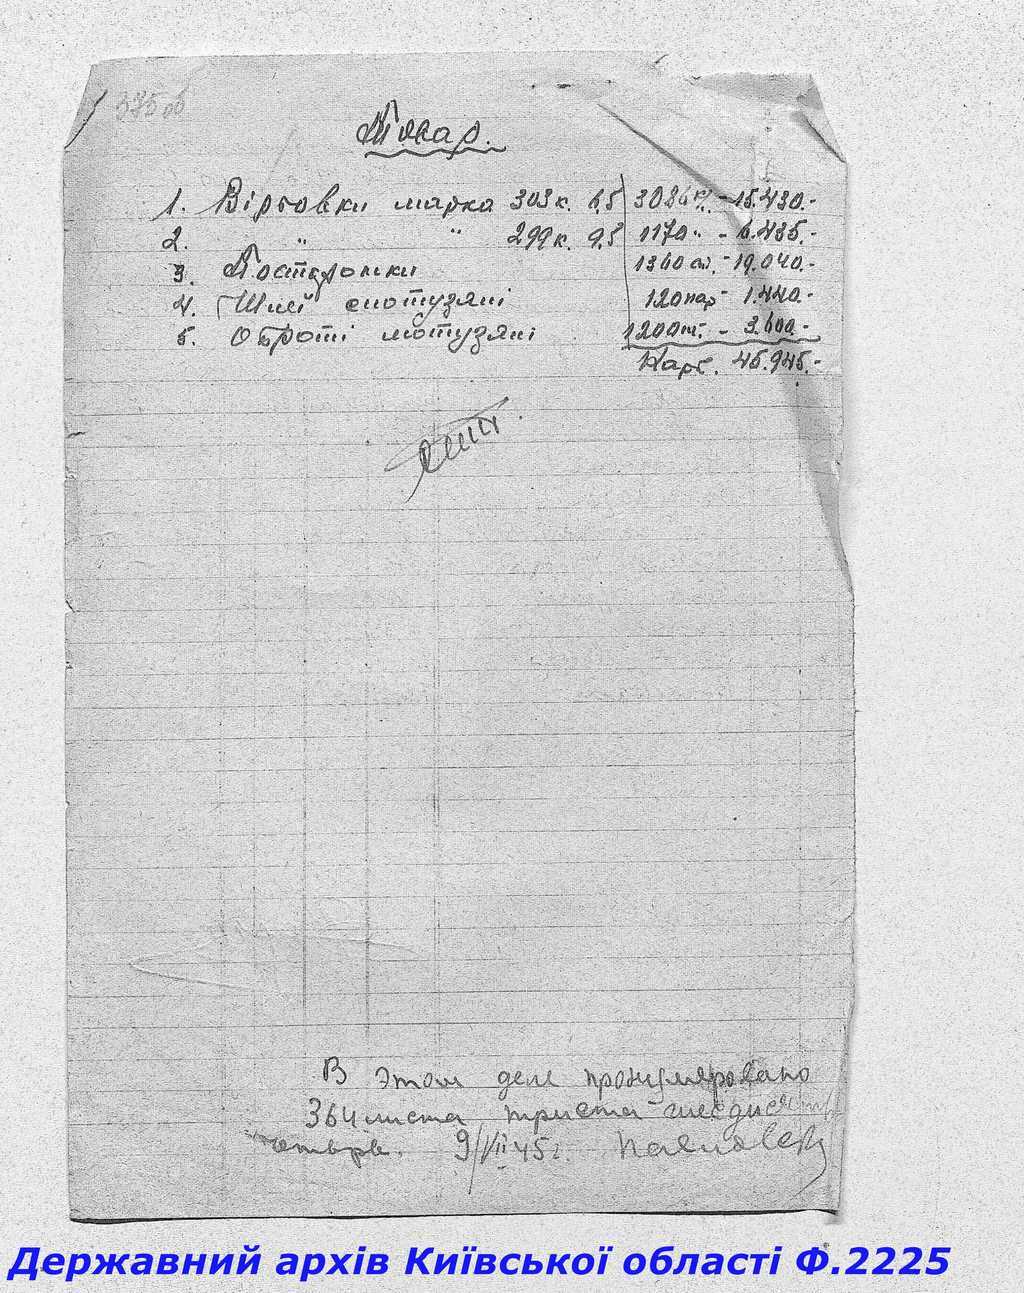 37500
Товар.
1. Вірьовки марка 303 к. 6.5 3086 кг. - 15.430.-
2. " " 299 к. 9.5 1170 " - 6.435.-
3. Посторонки 1360 - 19.040.-
4. Шлеї мотузяні 120 пар - 1.440.-
5. Оброті мотузяні 1200 шт. - 3.600.-
Карб. 45.945.-
В этом деле пронумеровано
364 листа триста шесдисят
четыре. 9/VII 45 г.
Державний архів Київської області Ф.2225